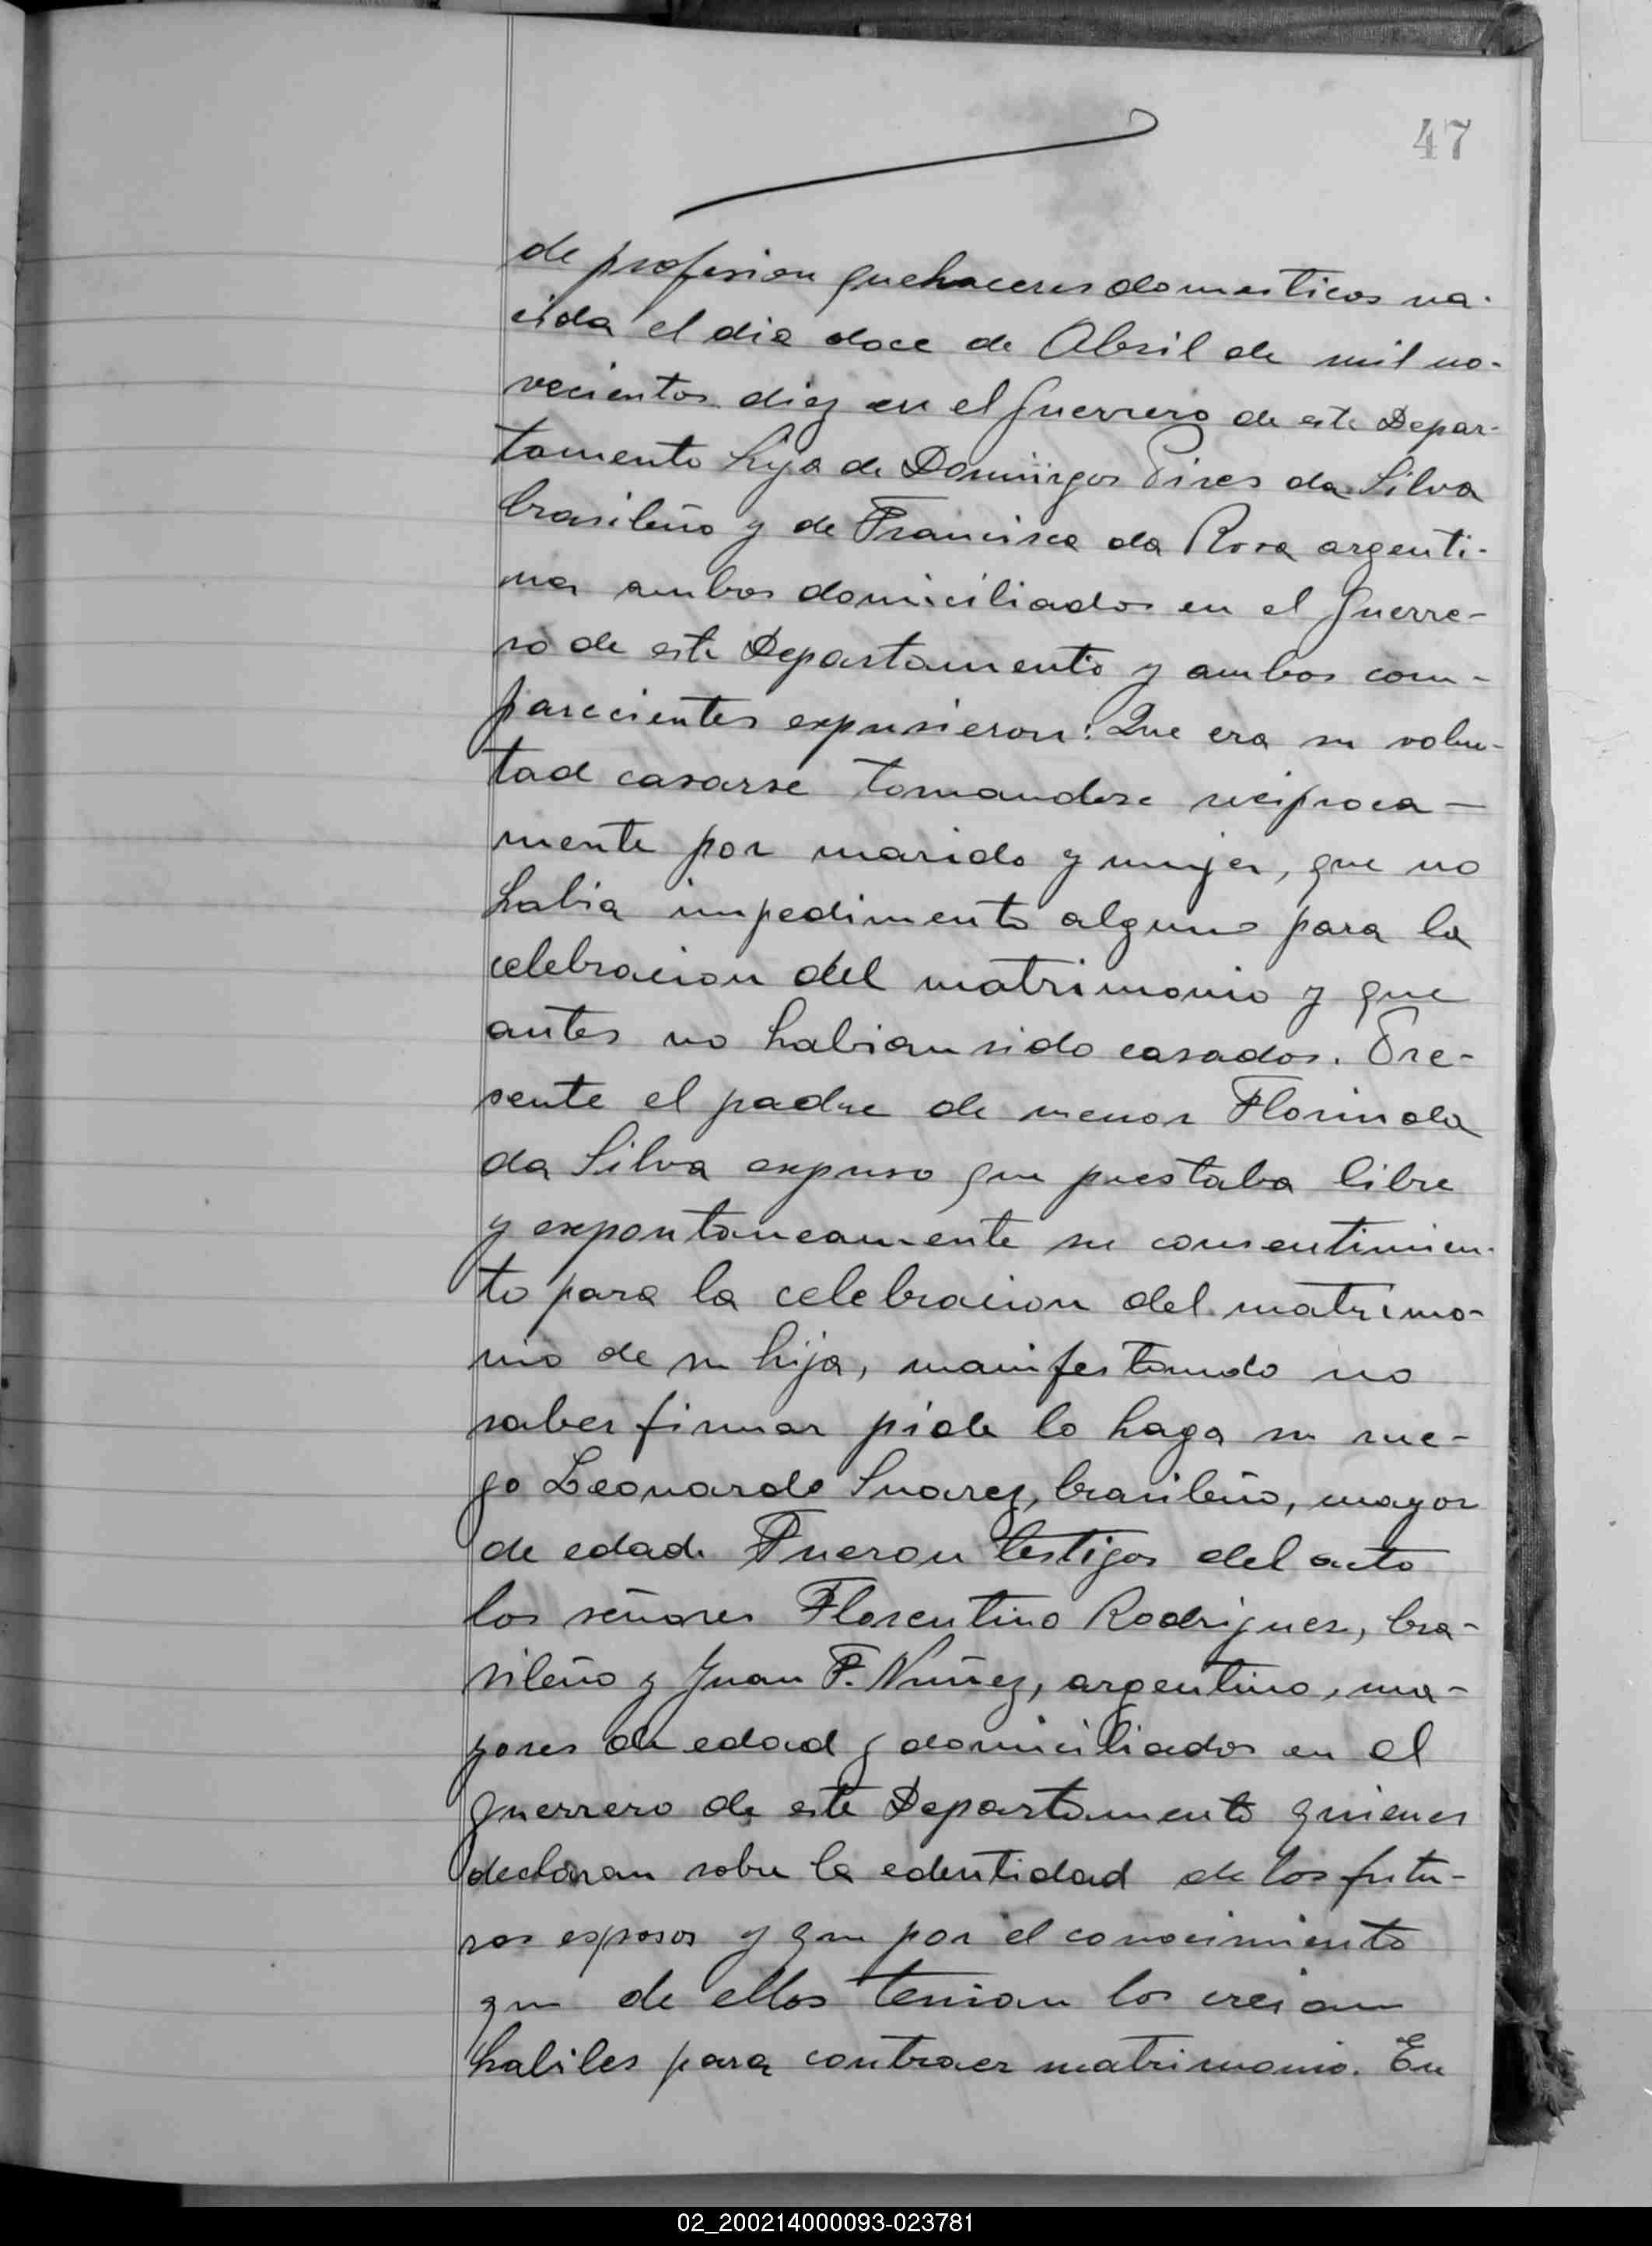 47
de profesion quehaceres domesticos na-
cida el dia doce de Abril de mil no-
vecientos diez en el Guerrero de este Depar-
tamento hija de Domingos Pires da Silva
brasileño y de Francisca da Rosa argenti-
na ambos domiciliados en el Guerre-
ro de este Departamento y ambos com-
parecientes expusieron: Que era su volun-
tad casarse tomandose reciproca-
mente por marido y mujer, que no
habia impedimento alguno para la
celebracion del matrimonio y que
antes no habian sido casados. Pre-
sente el padre de menor Florinda
da Silva expuso que prestaba libre
y expontaneamente su consentimien-
to para la celebracion del matrimo-
nio de su hija, manifestando no
saber firmar pide lo haga su rue-
go Leonardo Suarez, brasileño, mayor
de edad. Fueron testigos del acto
los señores Florentino Rodriguez, bra-
sileño y Juan F. Nuñez, argentino, ma-
yores de edad y domiciliados en el
Guerrero de este Departamento quienes
declaran sobre la edentidad de los futu-
ros esposos y que por el conocimiento
que de ellos tenian los creian
habiles para contraer matrimonio. En
02_200214000093-023781